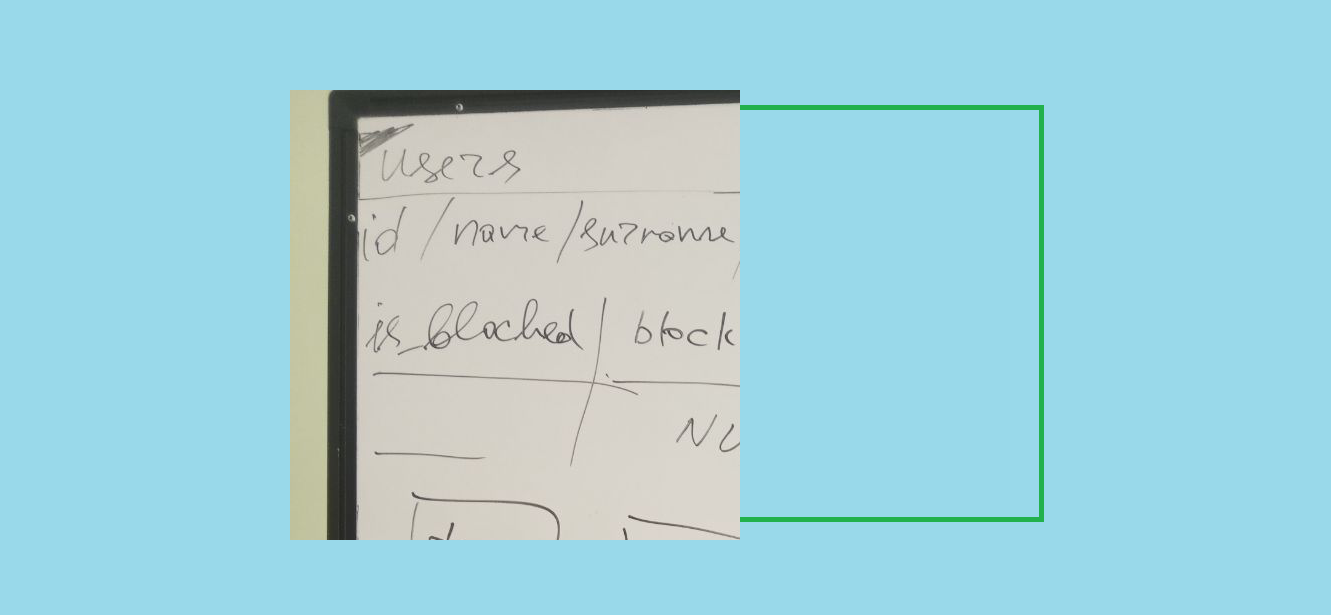 users
id / name / surname
is_blocked / block
NU